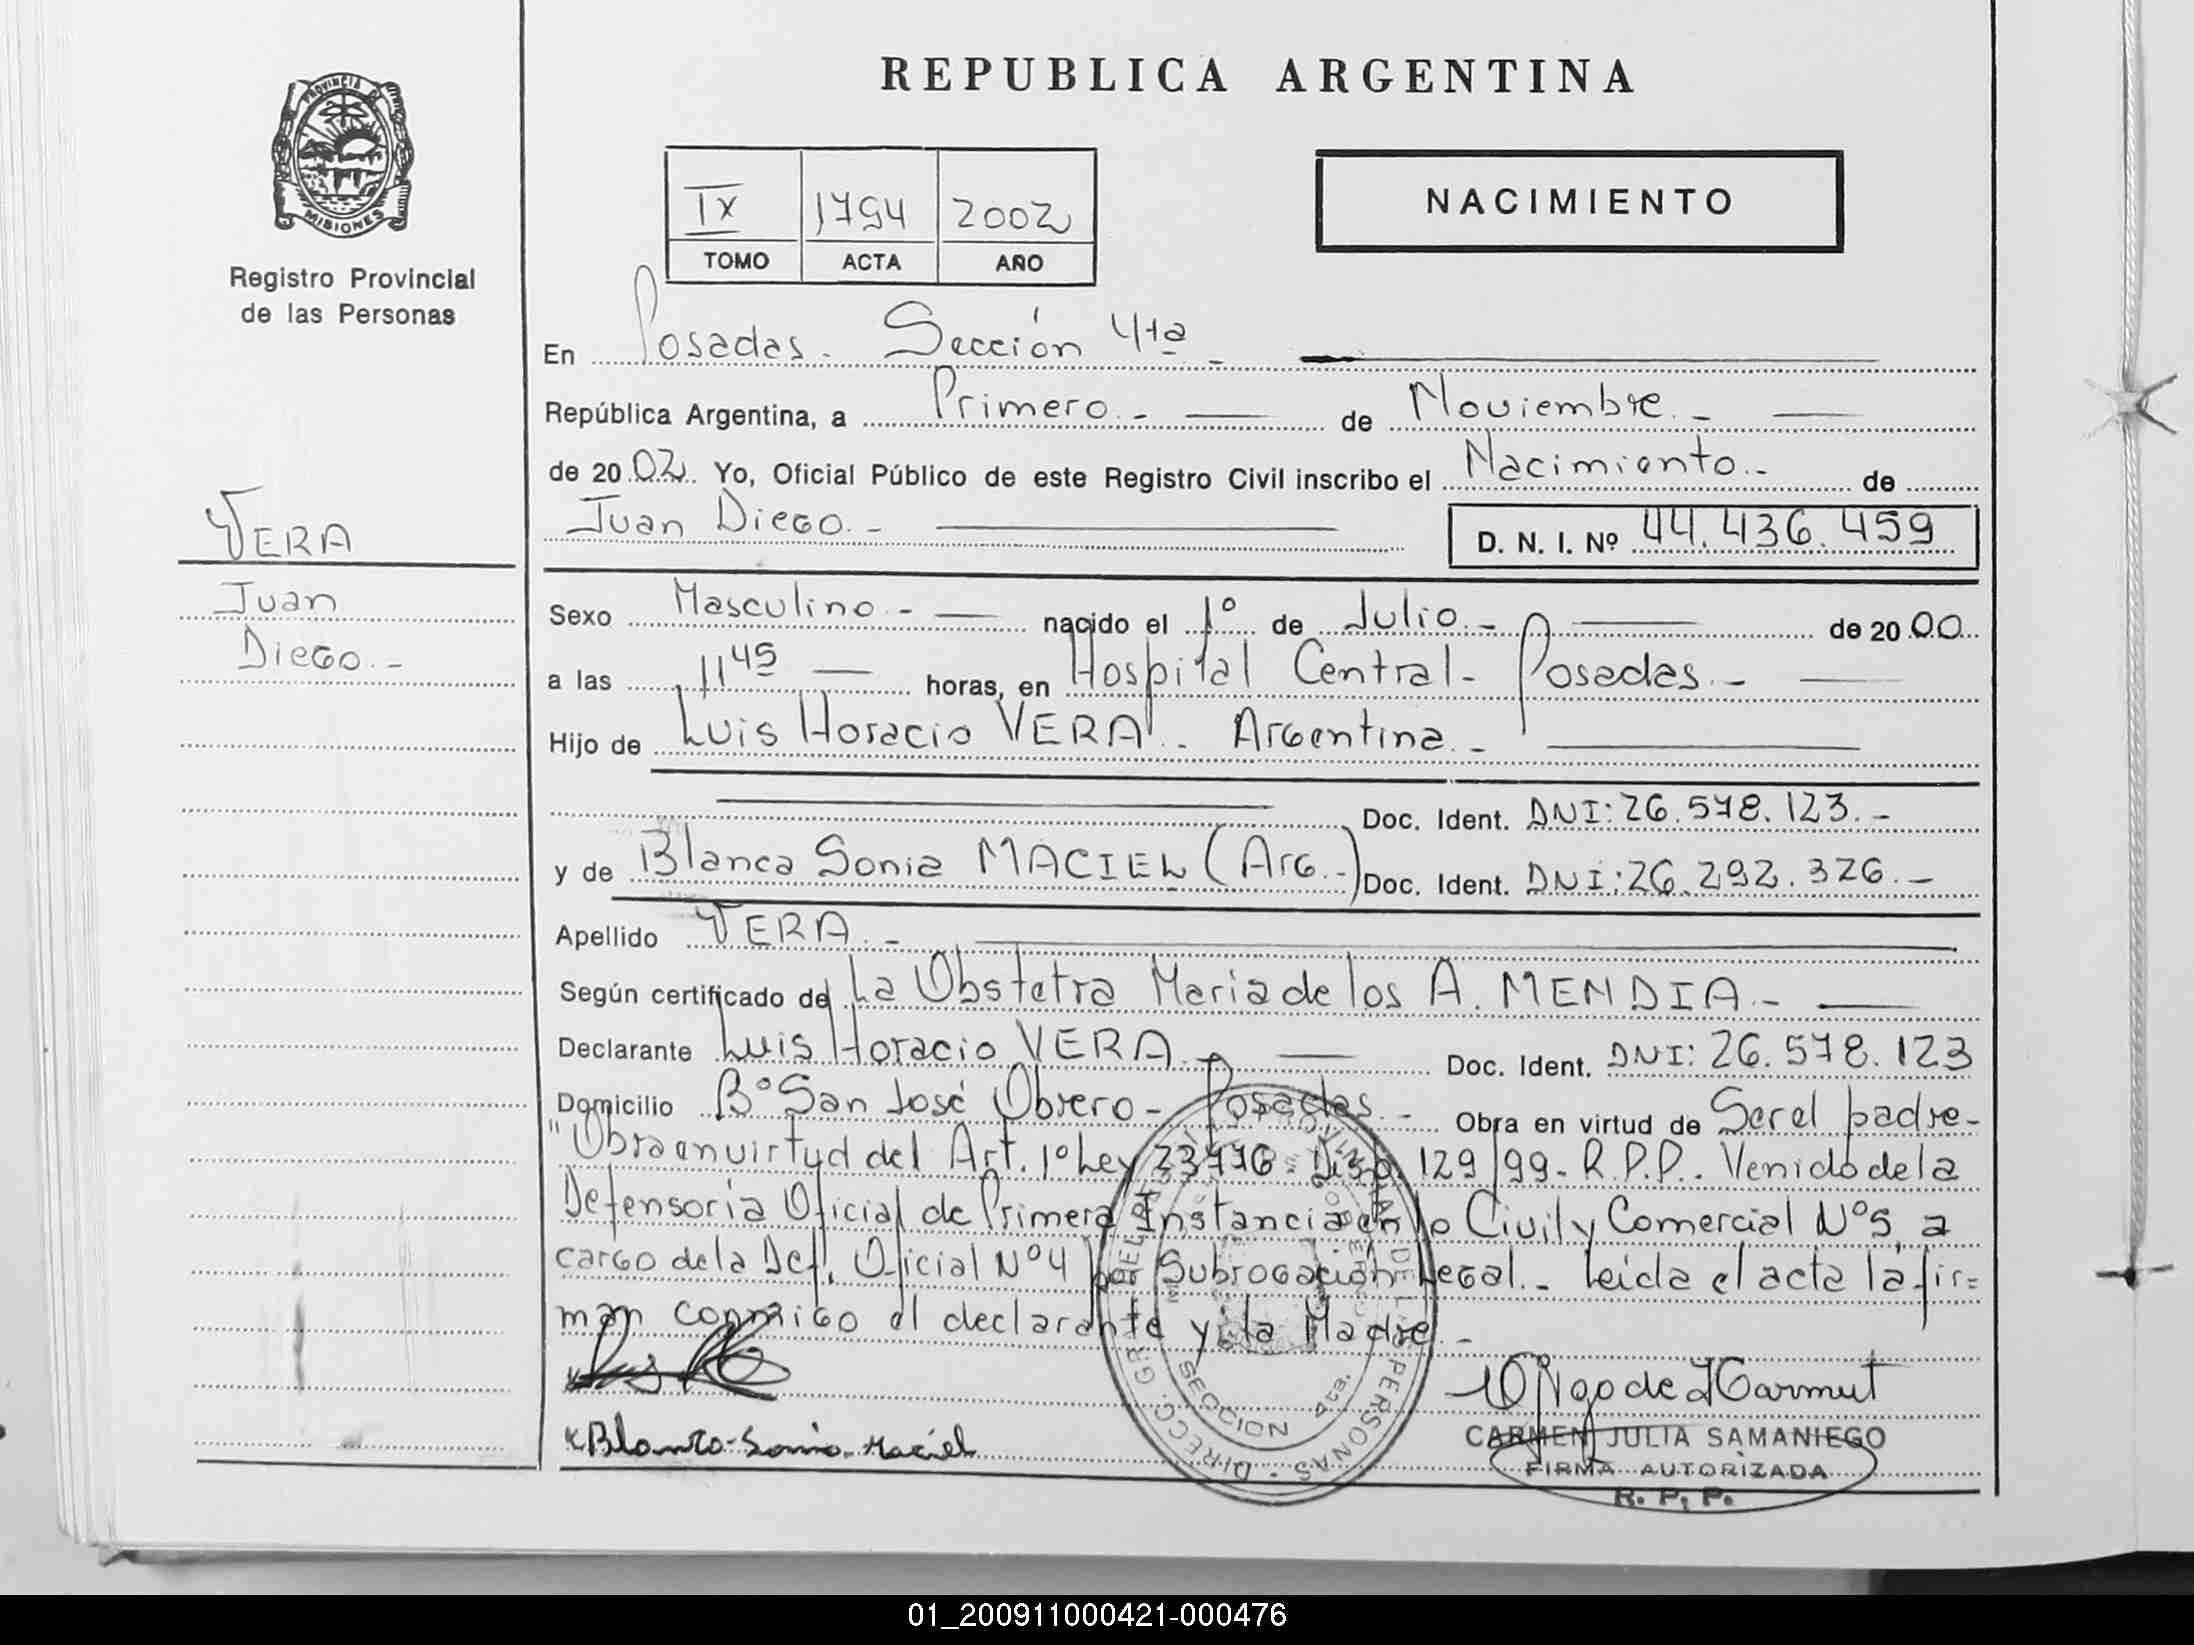 REPUBLICA ARGENTINA
PROVINCIA DE
MISIONES
Registro Provincial
de las Personas
IX 1794 2002
TOMO ACTA AÑO
NACIMIENTO
En Posadas.- Sección 4ta.-
República Argentina, a Primero.- de Noviembre.-
de 2002. Yo, Oficial Público de este Registro Civil inscribo el Nacimiento.- de
Juan Diego.- D. N. I. Nº 44.436.459
VERA
Juan
Diego.-
Sexo Masculino.- nacido el 1º de Julio.- de 2000
a las 11 45 horas, en Hospital Central- Posadas.-
Hijo de Luis Horacio VERA.- Argentina.-
Doc. Ident. DNI: 26.578.123.-
y de Blanca Sonia MACIEL (Arg.-) Doc. Ident. DNI: 26.292.326.-
Apellido VERA.-
Según certificado de La Obstetra Maria de los A. MENDIA.-
Declarante Luis Horacio VERA.- Doc. Ident. DNI: 26.578.123
Domicilio Bº San José Obrero- Posadas.- Obra en virtud de Ser el padre-
"Obra en virtud del Art. 1º Ley 23776- Disp. 129/99- R.P.P. Venido de la
Defensoria Oficial de Primera Instancia en lo Civil y Comercial Nº5, a
cargo de la Def. Oficial Nº4 por Subrogación Legal.- Leida el acta la fir=
man conmigo el declarante y la Madre.-
Blanca Sonia Maciel
SECCION 4ta.
CARMEN JULIA SAMANIEGO
FIRMA AUTORIZADA
R. P. P.
01_200911000421-000476